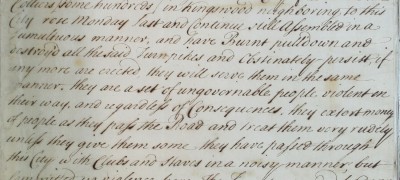 Colliers some hundreds, in Kingswood neighbouring to this
City rose Monday last and Continue still Assembled in a
tumultuous manner, and have Burnt pulldown and
destroyd all the said Turnpikes and Obstinately persist if
any more are erected they will serve them in the same
manner, they are a set of ungovernable people violent in
their way, and regardless of Consequences, they extort money
of people as they pass the Road and treat them very rudely
unless they give them some they have passed through
this City with Clubs and staves in a noisy manner, but
Committed no violence from the